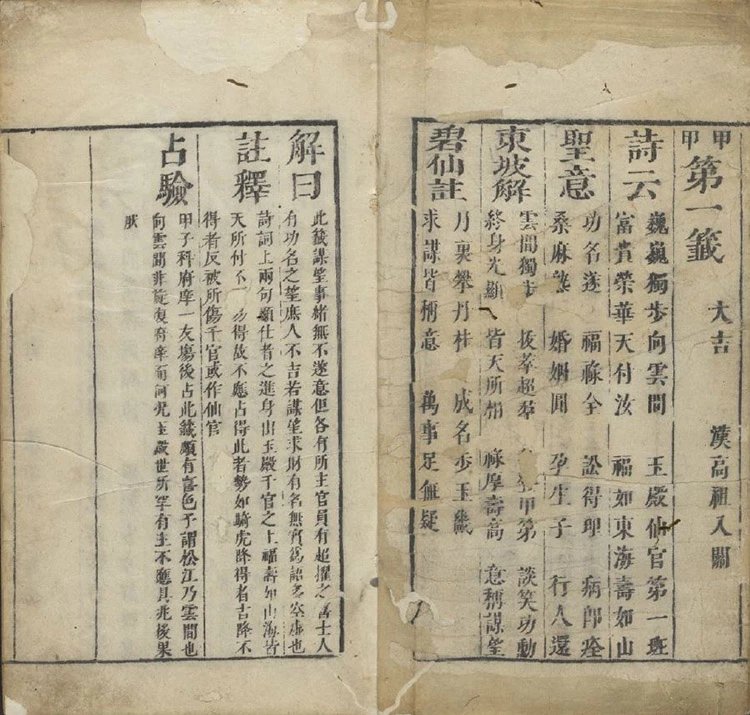 甲甲 第一籤 大吉 漢高祖入關
詩云
巍巍獨步向雲間 玉殿仙官第一班
富貴榮華天付汝 福如東海壽如山
聖意
功名遂 福祿全 訟得理 病即痊
桑麻熟 婚姻圓 孕生子 行人還
東坡解
雲間獨步 拔萃超羣 甲第 談笑功勳
終身光顯 皆天所相 祿 壽高 意稱謀望
碧仙註
月裏攀丹桂 成名步玉畿
求謀皆稱意 萬事足無疑
解曰
此籤謀望事緒無不遂意但各有所主官員有超擢之喜士人
有功名之望庶人不吉若謀望求財有名無實為語多空虛也
註釋
詩詞上兩句顯仕者之進身出玉殿千官之上福壽如山海皆
天所付不 易得故不應占得此者勢如騎虎降得者吉降不
得者反被所傷千官或作仙官
占驗
甲子科府庠一友場後占此籤頗有喜色予謂松江乃雲間也
向雲間非旋復府庠而何況玉殿世所罕有主不應具兆後果
肰